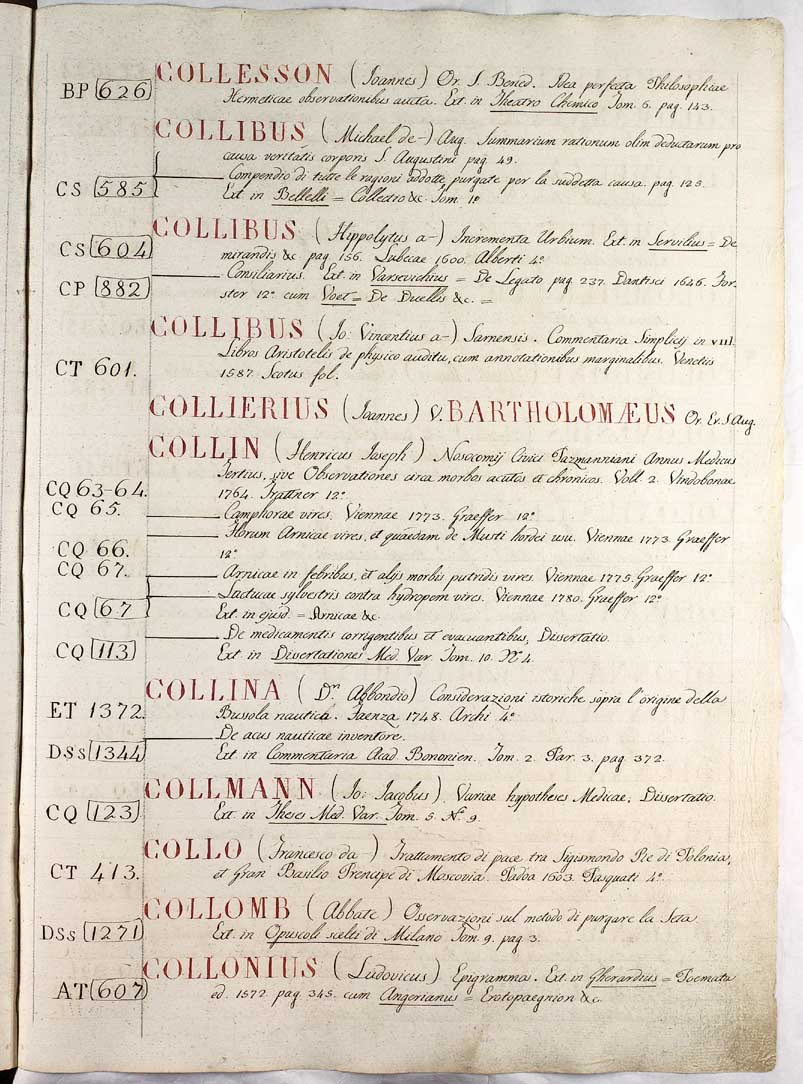 COLLESSON (Joannes) Or. S. Bened. Idea perfecta Philosophicae
BP 626 Hermeticae observationibus aucta. Ext. in Theatro Chemico Tom. 6. pag. 143.
COLLIBUS (Michael de-) Aug. Summarium rationum olim deductarum pro
causa veritatis corporis S. Augustini pag. 49.
Compendio di tutte le ragioni addotte, purgate per la suddetta causa. pag. 123.
CS 585 Ext. in Bellelli = Collectio &c. Tom. 1º
COLLIBUS (Hippolytus a-) Incrementa Urbium. Ext. in Servilius = De
CS 604 mirandis &c. pag. 156. Lubecae 1600. Alberti 4º
Consiliarius. Ext. in Varsevichius = De Legato pag. 237. Dantisci 1646. För-
CP 882 ster 12º cum Voet = De Duellis &c. =
COLLIBUS (Jo: Vincentius a-) Sarnensis. Commentaria Simplicij in VIII.
Libros Aristotelis de physico auditu, cum annotationibus marginalibus. Venetiis
CT 601. 1587. Scotus fol.
COLLIERIUS (Joannes) V. BARTHOLOMÆUS Or. Er. S. Aug.
COLLIN (Henricus Joseph) Nosocomij Civici Pazmanniani Annus Medicus
Tertius, sive Observationes circa morbos acutos et chronicos. Voll. 2. Vindobonae
CQ 63-64. 1764. Trattner 12º
CQ 65. Camphorae vires. Viennae 1773. Graeffer 12º
Florum Arnicae vires, et quaedam de Musti hordei usu. Viennae 1773. Graeffer
CQ 66. 12º
CQ 67. Arnicae in febribus, et alijs morbis putridis vires. Viennae 1775. Graeffer 12º
Lactucae sylvestris contra hydropem vires. Viennae 1780. Graeffer 12º
CQ 67 Ext. in ejusd. = Arnicae &c.
De medicamentis corrigentibus et evacuantibus, Dissertatio.
CQ 113 Ext. in Dissertationes Med. Var. Tom. 10. Nº 4.
COLLINA (Dn Abbondio) Considerazioni istoriche sopra l'origine della
ET 1372. Bussola nautica. Faenza 1748. Archi 4º
De acus nauticae inventore.
DSs 1344 Ext. in Commentaria Acad. Bononien. Tom. 2. Par. 3. pag. 372.
COLLMANN (Jo: Jacobus) Variae hypotheses Medicae, Dissertatio.
CQ 123 Ext. in Theses Med. Var. Tom. 5. Nº 9.
COLLO (Francesco da-) Trattamento di pace tra Sigismondo Re di Polonia,
CT 413. et Gran Basilio Prencipe di Moscovia. Padoa 1603. Pasquati 4º
COLLOMB (Abbate) Osservazioni sul metodo di purgare la Seta.
DSs 1271 Ext. in Opuscoli scelti di Milano Tom. 9. pag. 3.
COLLONIUS (Ludovicus) Epigramma. Ext. in Gherardius = Poemata
AT 607 ed. 1572. pag. 345. cum Angerianus = Erotopaegnion &c.